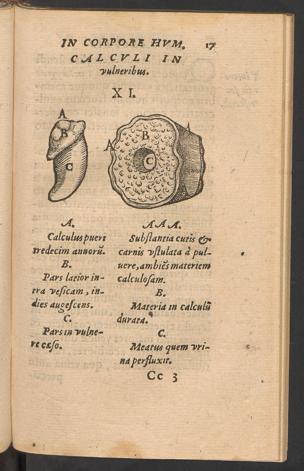 IN CORPORE HVM. 17
CALCVLI IN
vulneribus.
XI.
A
B
C
A
B
A
C
A.
Calculus pueri
tredecim annorū.
B.
Pars latior in-
tra vesicam, in-
dies augescens.
C.
Pars in vulne-
re cæso.
AAA.
Substantia cutis &
carnis vstulata à pul-
uere, ambiēs materiem
calculosam.
B.
Materia in calculū
durata.
C.
Meatus quem vri-
na perfluxit.
Cc 3